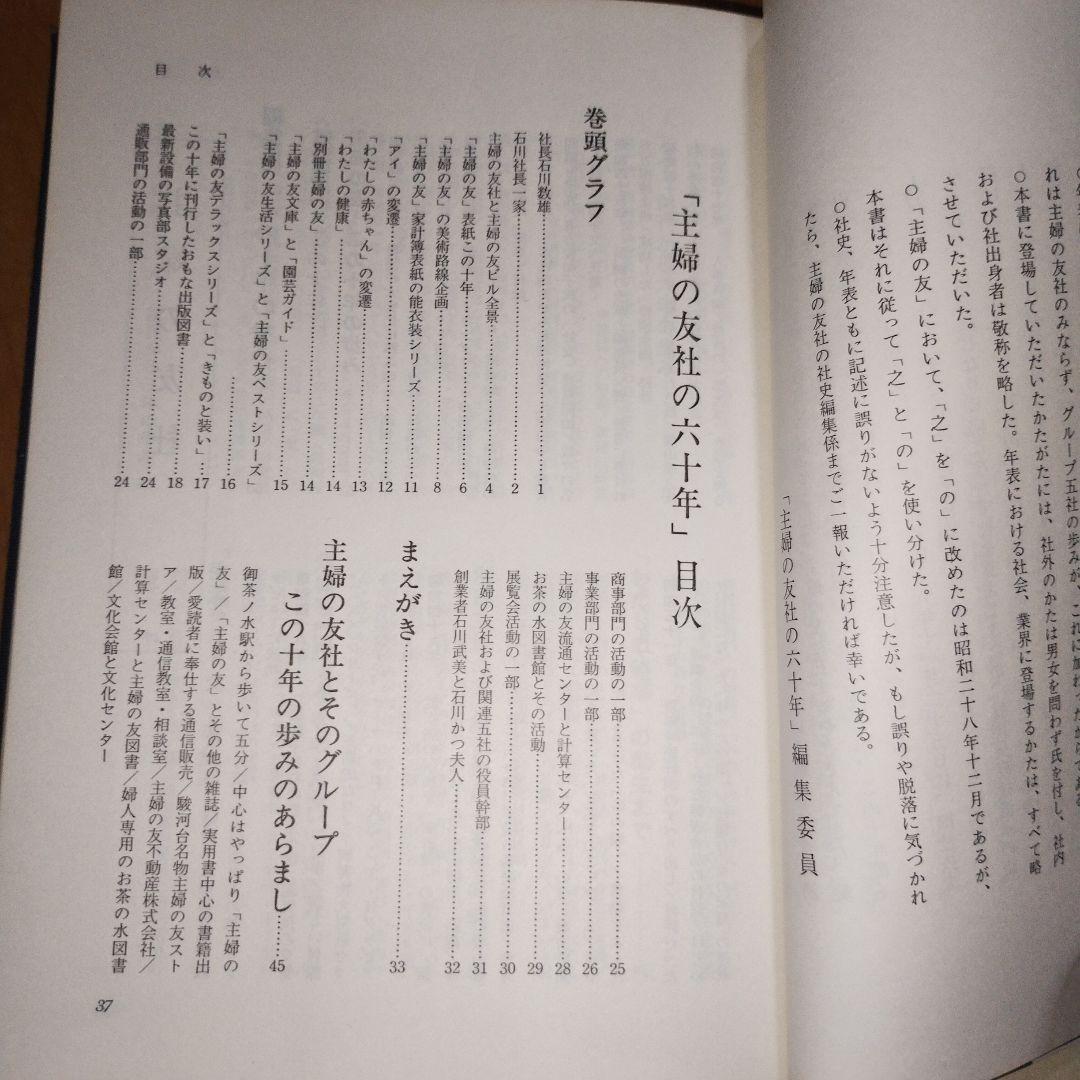 れは主婦の友社のみならず、グループ五社の歩みが、これに加わ
○本書に登場していただいたかたがたには、社外のかたは男女を問わず氏を付し、社内
および社出身者は敬称を略した。年表における社会、業界に登場するかたは、すべて略
させていただいた。
○「主婦の友」において、「之」を「の」に改めたのは昭和二十八年十二月であるが、
本書はそれに従って「之」と「の」を使い分けた。
○社史、年表ともに記述に誤りがないよう十分注意したが、もし誤りや脱落に気づかれ
たら、主婦の友社の社史編集係までご一報いただければ幸いである。
「主婦の友社の六十年」編集委員
目次
「主婦の友社の六十年」目次
巻頭グラフ
社長石川数雄……1
石川社長一家……2
主婦の友社と主婦の友ビル全景……4
「主婦の友」表紙この十年……6
「主婦の友」の美術路線企画……8
「主婦の友」家計簿表紙の能衣装シリーズ……11
「アイ」の変遷……12
「わたしの赤ちゃん」の変遷……13
「わたしの健康」……14
「別冊主婦の友」……14
「主婦の友文庫」と「園芸ガイド」……15
「主婦の友生活シリーズ」と「主婦の友ベストシリーズ」
……16
「主婦の友デラックスシリーズ」と「きものと装い」……17
この十年に刊行したおもな出版図書……18
最新設備の写真部スタジオ……24
通販部門の活動の一部……24
商事部門の活動の一部……25
事業部門の活動の一部……26
主婦の友流通センターと計算センター……28
お茶の水図書館とその活動……29
展覧会活動の一部……30
主婦の友社および関連五社の役員幹部……31
創業者石川武美と石川かつ夫人……32
まえがき……33
主婦の友社とそのグループ
この十年の歩みのあらまし……45
御茶ノ水駅から歩いて五分/中心はやっぱり「主婦の
友」/「主婦の友」とその他の雑誌/実用書中心の書籍出
版/愛読者に奉仕する通信販売/駿河台名物主婦の友スト
ア/教室・通信教室・相談室/主婦の友不動産株式会社/
計算センターと主婦の友図書/婦人専用のお茶の水図書
館/文化会館と文化センター
37